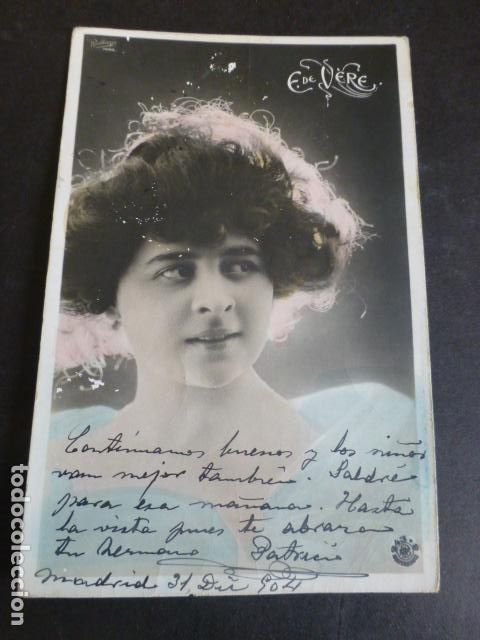 E. DE VÈRE.
Continuamos buenos y los niños
van mejor tambien. Saldré
para esa mañana. Hasta
la vista pues te abraza
tu hermano Patricio
Madrid 31, Dic 904
todocoleccion